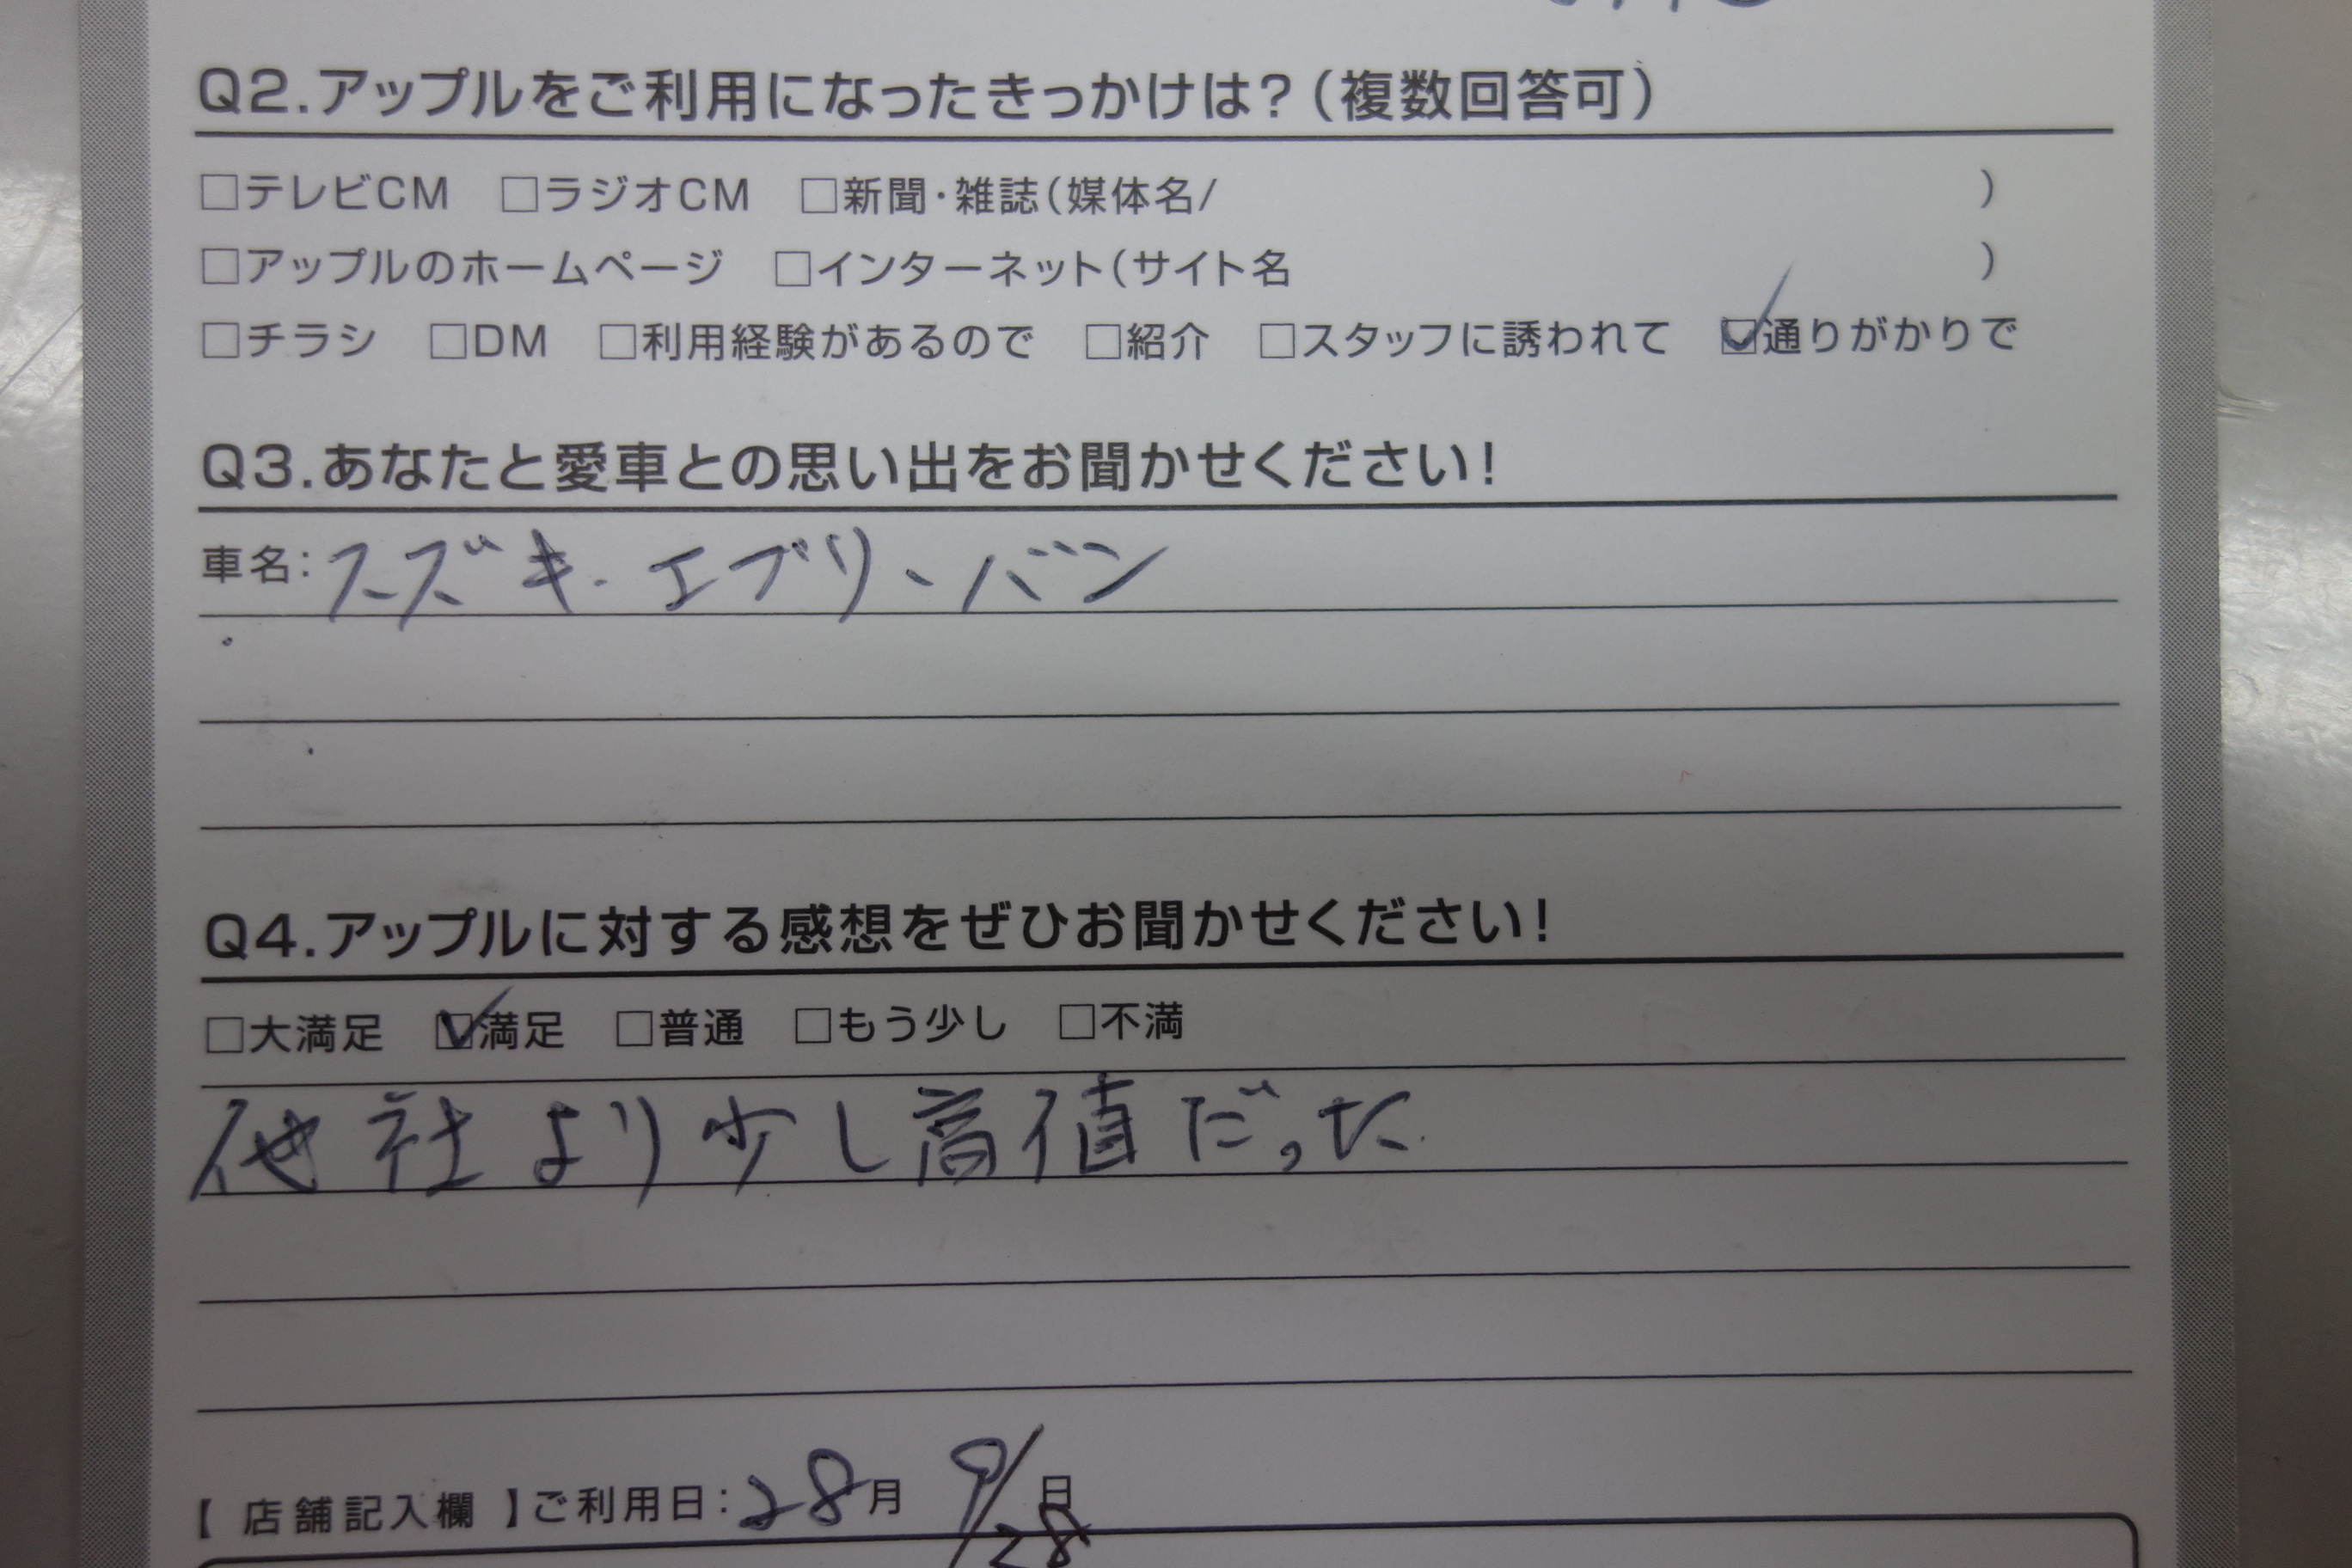 Q2.アップルをご利用になったきっかけは？（複数回答可）
□テレビCM □ラジオCM □新聞・雑誌（媒体名/ ）
□アップルのホームページ □インターネット（サイト名 ）
□チラシ □DM □利用経験があるので □紹介 □スタッフに誘われて ☑通りがかりで
Q3.あなたと愛車との思い出をお聞かせください！
車名：スズキ・エブリーバン
Q4.アップルに対する感想をぜひお聞かせください！
□大満足 ☑満足 □普通 □もう少し □不満
他社より少し高値だった.
【 店舗記入欄 】ご利用日：28月 9/28日